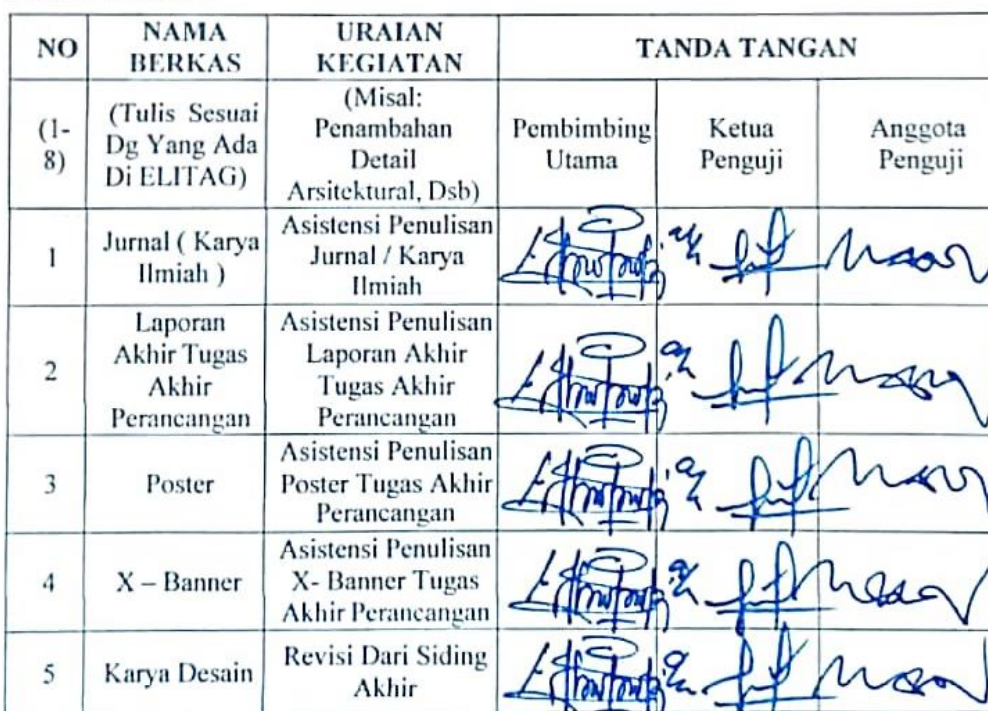 NO
NAMA
BERKAS
URAIAN
KEGIATAN
TANDA TANGAN
(1-
8)
(Tulis Sesuai
Dg Yang Ada
Di ELITAG)
(Misal:
Penambahan
Detail
Arsitektural, Dsb)
Pembimbing
Utama
Ketua
Penguji
Anggota
Penguji
1
Jurnal ( Karya
Ilmiah )
Asistensi Penulisan
Jurnal / Karya
Ilmiah
2
Laporan
Akhir Tugas
Akhir
Perancangan
Asistensi Penulisan
Laporan Akhir
Tugas Akhir
Perancangan
3
Poster
Asistensi Penulisan
Poster Tugas Akhir
Perancangan
4
X – Banner
Asistensi Penulisan
X- Banner Tugas
Akhir Perancangan
5
Karya Desain
Revisi Dari Siding
Akhir